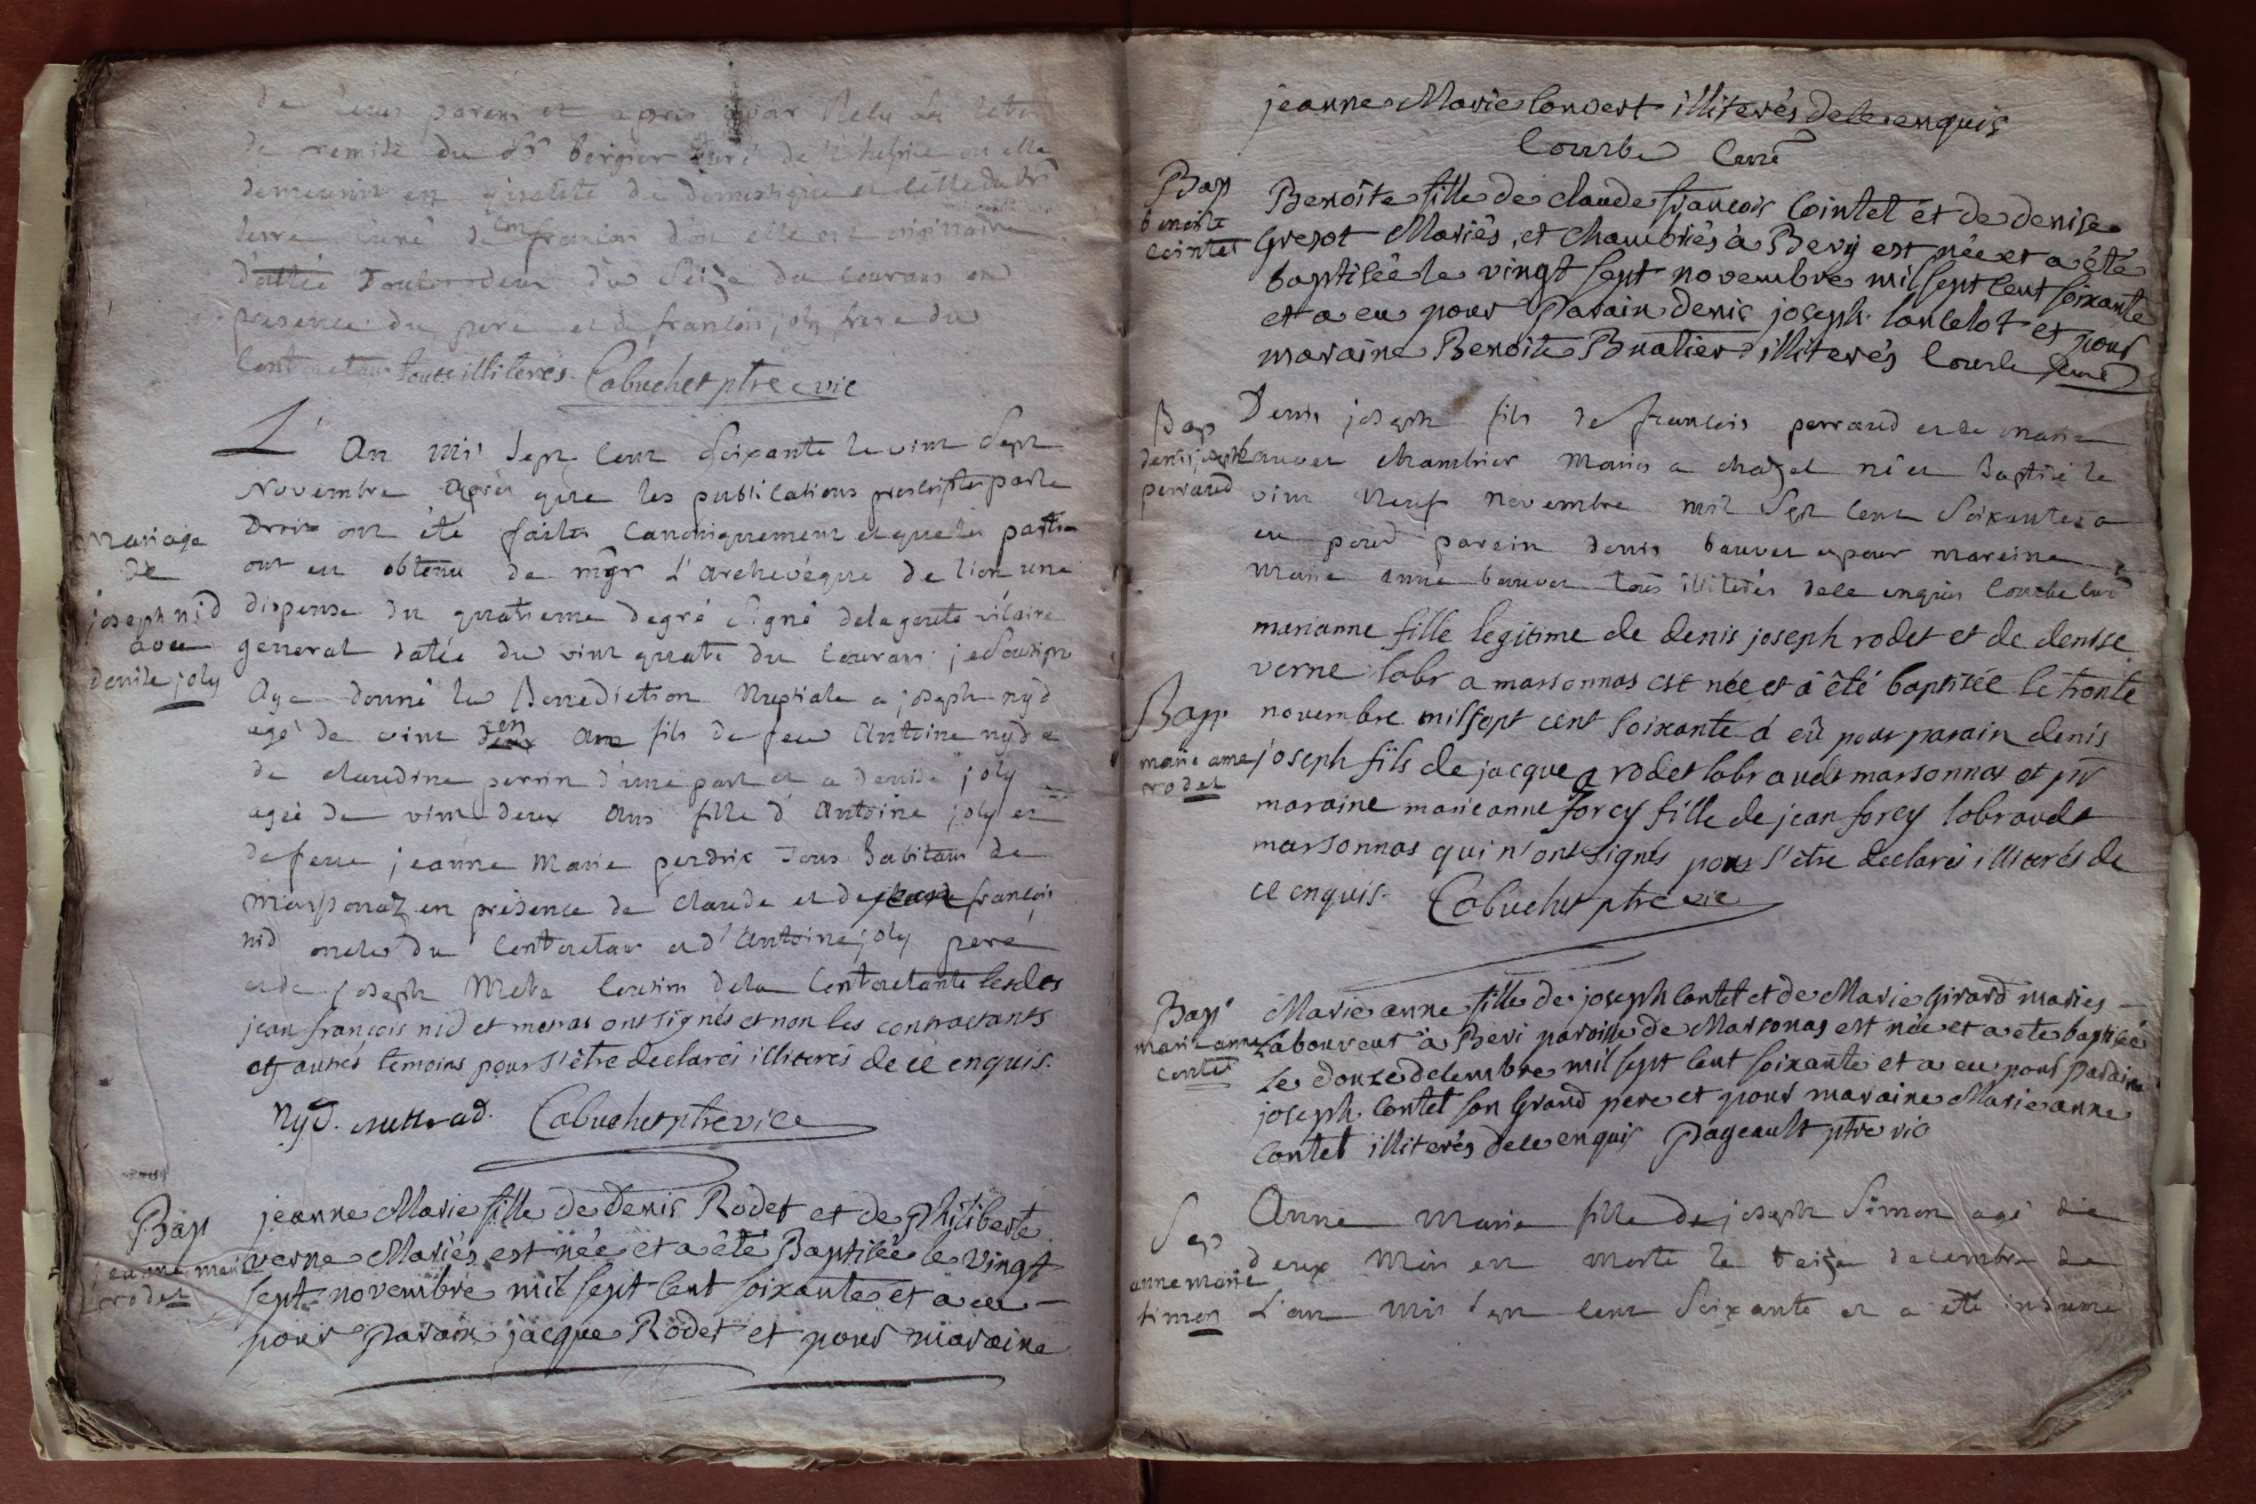 de leurs parens et apres avoir Relu la lettre
de remise du Sr borgier curé de ou elle
demeuroit en qualité de domestique et celle du Sr
curé de francois dou elle est originaire
datée toutes deux du Seize du courans en
presence du pere et de francois joly frere du
Contractans tous illiterés. Cabuchet ptre vic
L'An mil Sept Cent Soixante le vint Sept
Novembre après que les publications prescrites par le
Droit ont été faites Canoniquement et que les parties
Mariage
de
joseph nid
avec
denise joly
ont eu obtenu de mgr L'archevêque de lion une
dispense du quatrieme degré Signé delagoute vicaire
general datée du vint quatre du Courans je Soussigné
Aye donné la Benediction Nuptiale a joseph nyd
agé de vint deux ans fils de feu Antoine nyd et
de claudine perrin d'une part et a denise joly
agée de vint deux ans fille d'Antoine joly et
de feue jeanne Marie perdrix Tous habitans de
Marsonaz en présence de claude et de jean francois
nid oncles du Contractans et d'Antoine joly pere
et de joseph Cousin de la Contractante lesdts
jean françois nid et metras ont signés et non les contractants
et autres temoins pour s'être declarés illiterés de ce enquis.
Nyd. Cabuchet ptre vice
Bap
jeanne marie
rodet
jeanne Marie fille de Denis Rodet et de philiberte
verne Mariés est née et a été Baptisée le vingt
sept novembre mil sept cent soixante et a eu
pour Parain jacque Rodet et pour maraine
jeanne Marie Convert illiterés de ce enquis
Courbe Curé
Bap
benoite
cointet
Benoîte fille de claude françois Cointet et de denise
Grezot Mariés, et chambriés à Bevy est née et a été
baptisée le vingt sept novembre mil sept cent soixante
et a eu pour Parain denis joseph lancelot et pour
maraine Benoite Buatier illiterés Courbe Curé
Bap
denis joseph
perraud
Denis joseph fils de francois perraud et de marie
bauvet chambrier Mariés a chazel né et Baptisé le
vint Neuf Novembre mil Sept Cent Soixante a
eu pour parain denis bauvet et pour maraine
Marie anne bauvet tous illiterés de ce enquis Courbe Curé
Bap.
marie anne
rodet
marianne fille legitime de denis joseph rodet et de denise
verne labr a marsonnas est née et a été baptisée le trente
novembre mil sept cent soixante a eû pour parain denis
joseph fils de jacque rodet labr audt marsonnas et pr
maraine marie anne forey fille de jean forey labr audt
marsonnas qui n'ont signés pour s'être declarés illiterés de
ce enquis. Cabuchet ptre vic
Bap
marie anne
contet
Marie anne fille de joseph Contet et de Marie Girard mariés
Laboureur à Bevi paroisse de Marsonas est née et a été baptisée
Le douze decembre mil sept cent soixante et a eu pour Parain
joseph Contet son Grand pere et pour maraine Marie anne
Contet illiterés de ce enquis Pageault ptre vic
Sep
anne marie
simon
Anne Marie fille de joseph Simon agé de
deux Mois est morte le treize decembre de
L'an mil sept cent Soixante et a été inhumé